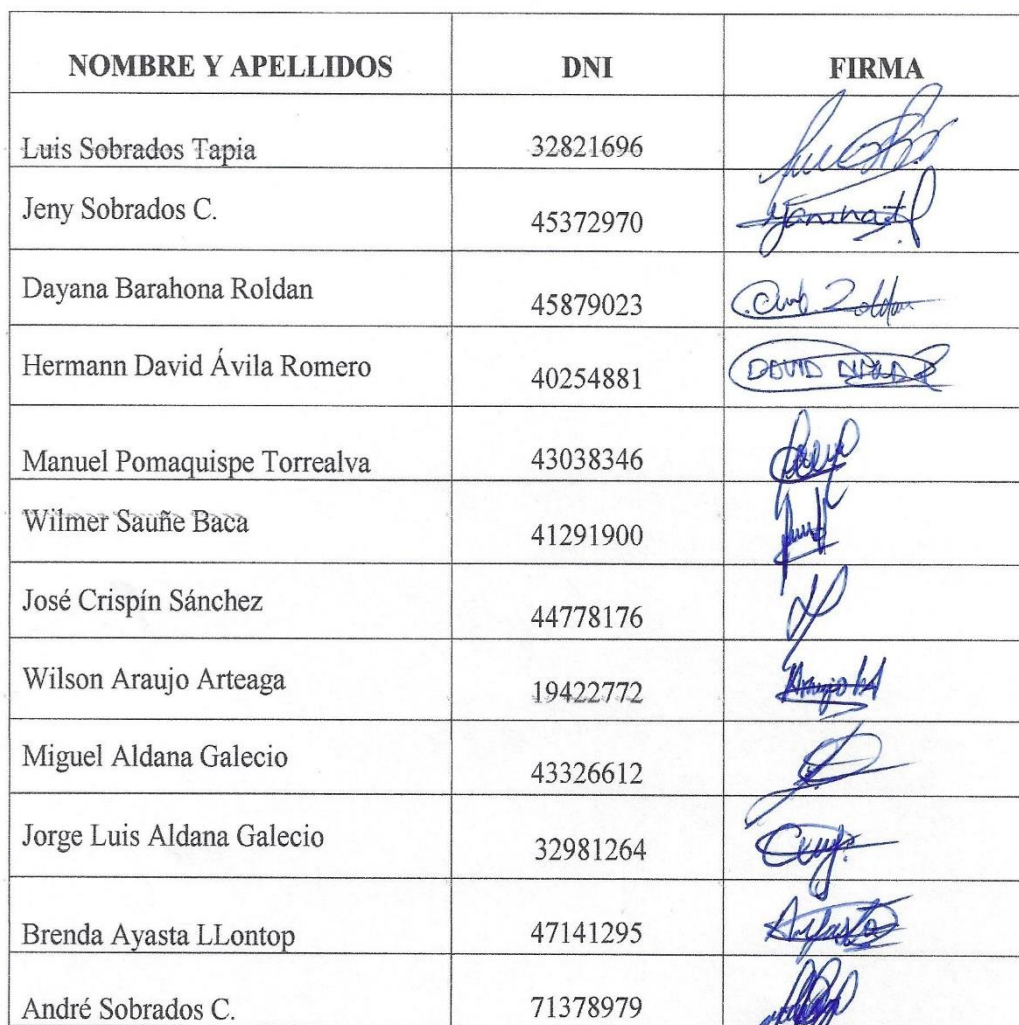 NOMBRE Y APELLIDOS DNI FIRMA
Luis Sobrados Tapia 32821696
Jeny Sobrados C. 45372970
Dayana Barahona Roldan 45879023
Hermann David Ávila Romero 40254881 DAVID
Manuel Pomaquispe Torrealva 43038346
Wilmer Sauñe Baca 41291900
José Crispín Sánchez 44778176
Wilson Araujo Arteaga 19422772 Araujo
Miguel Aldana Galecio 43326612
Jorge Luis Aldana Galecio 32981264
Brenda Ayasta LLontop 47141295
André Sobrados C. 71378979